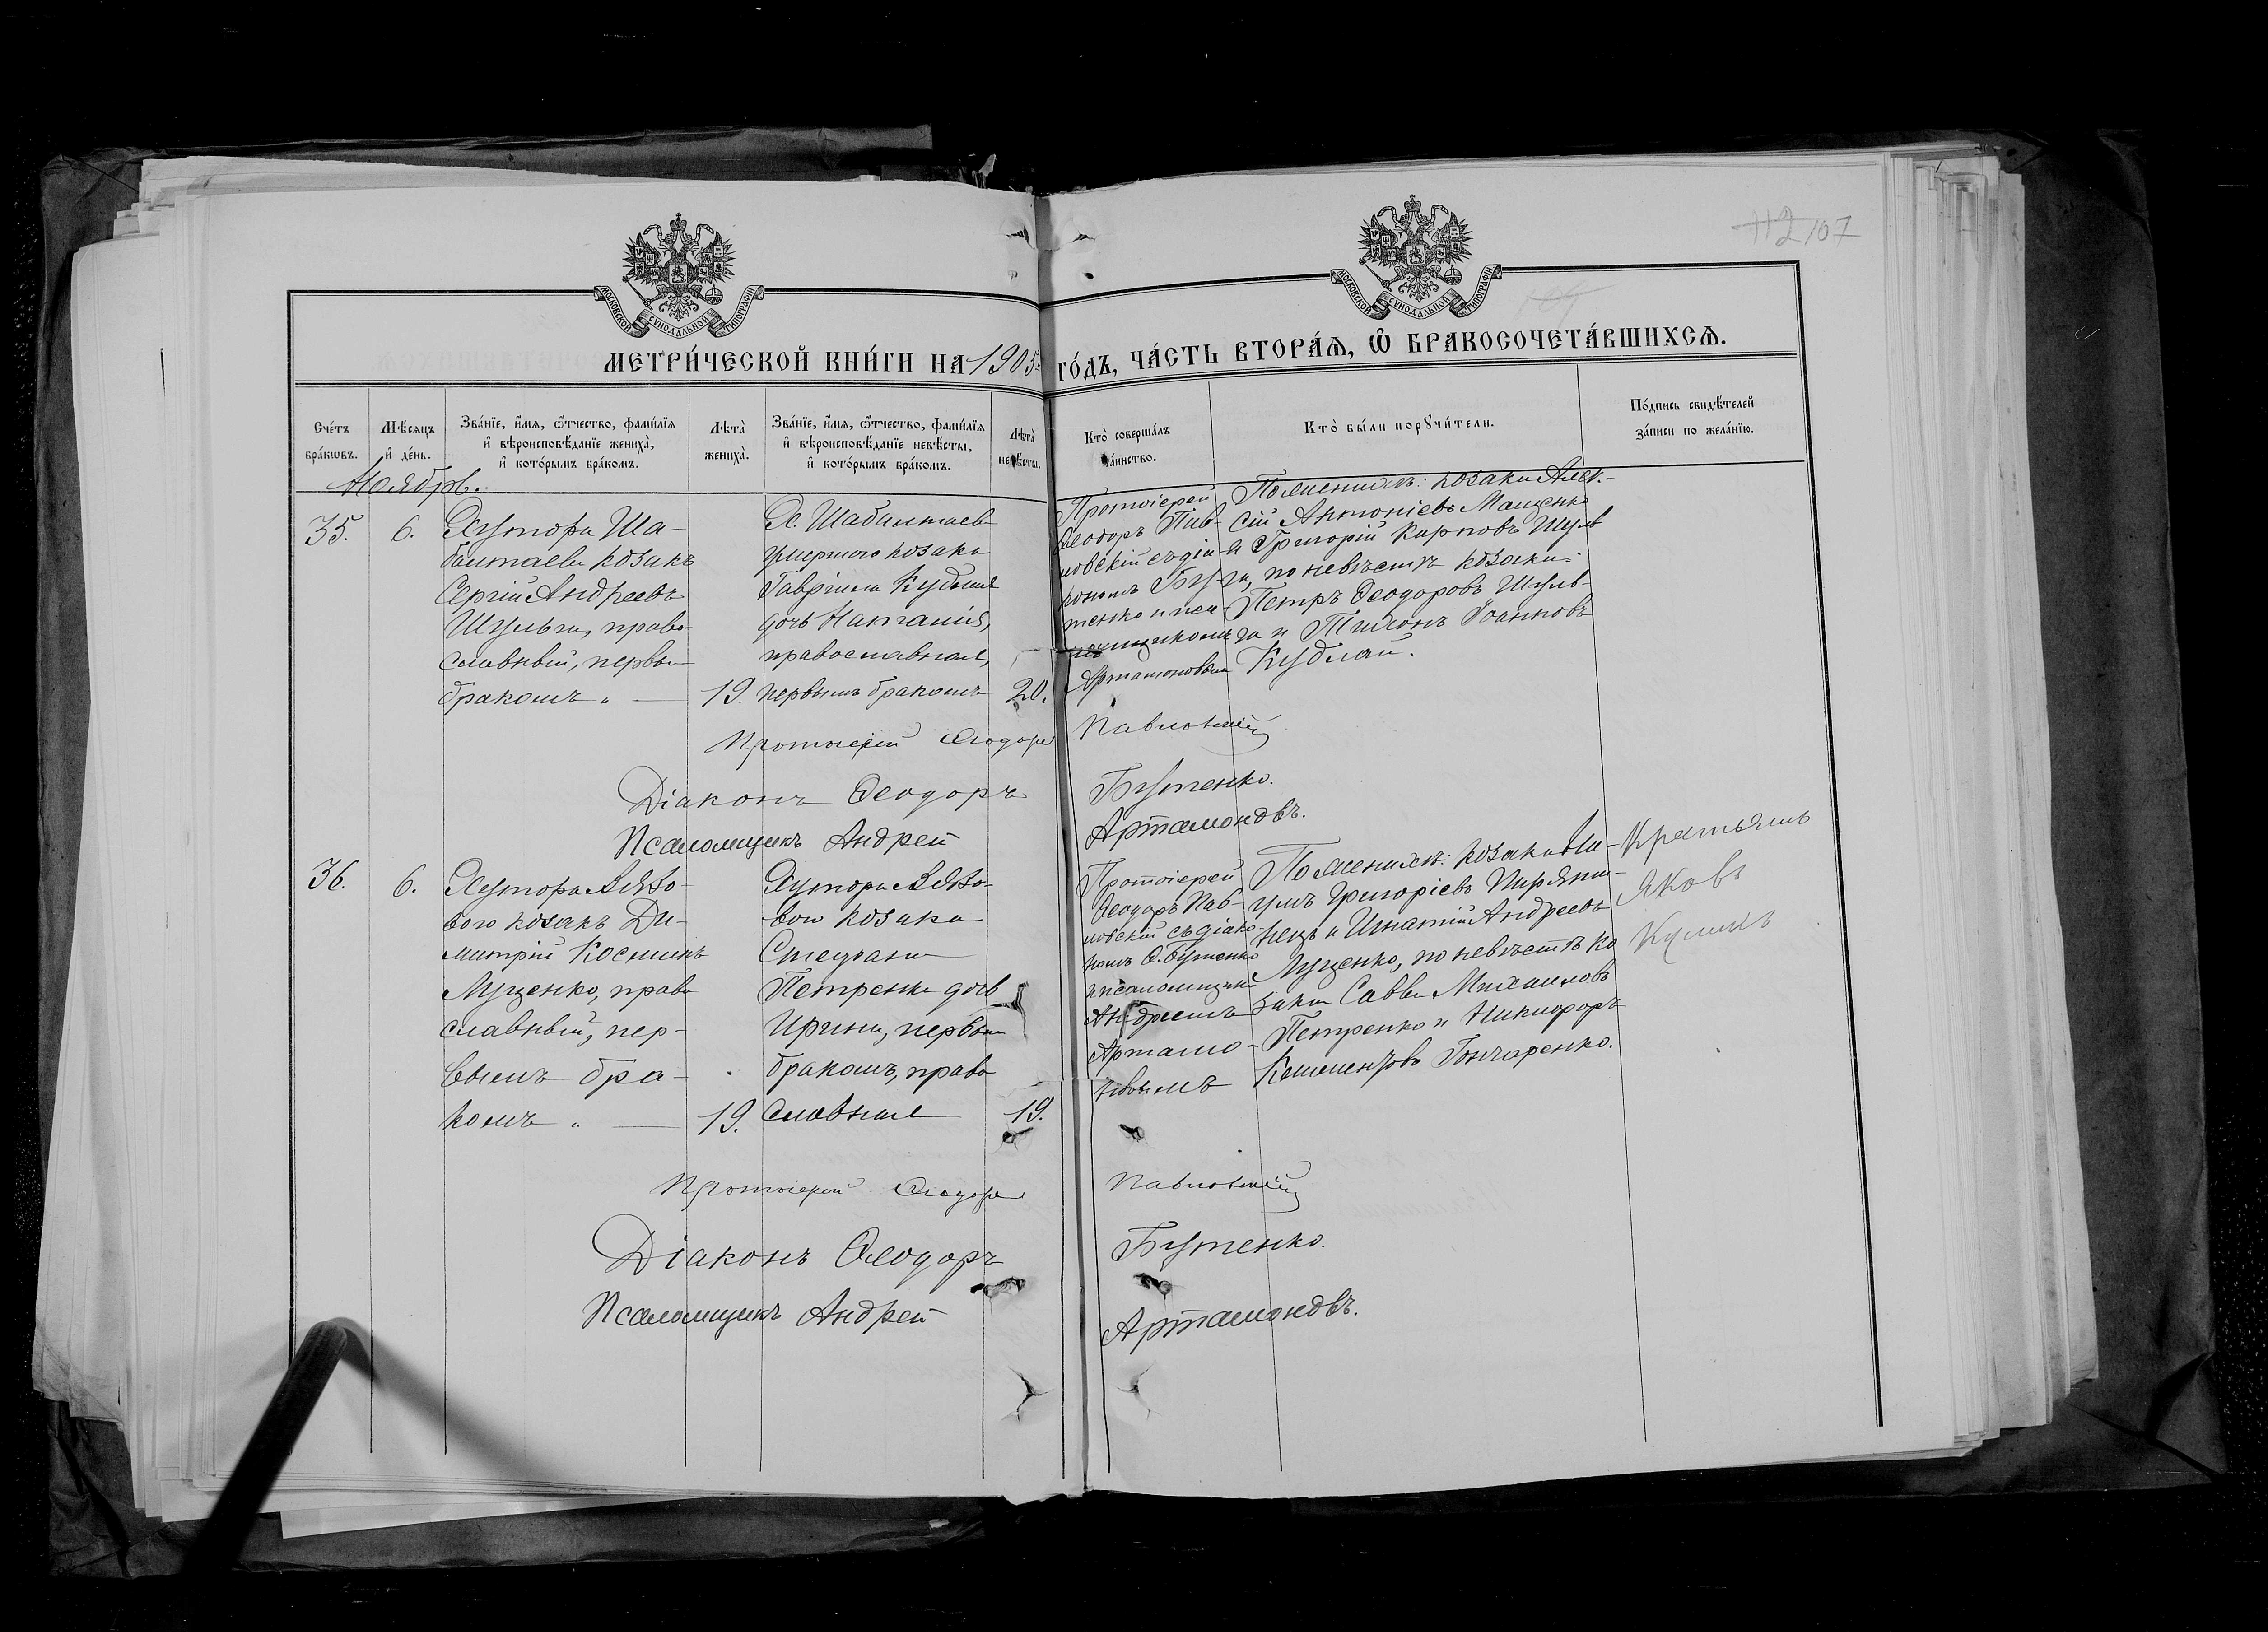 112 107
МОСКОВСКОЙ СУНОДАЛЬНОЙ ТИПОГРАФІИ
МОСКОВСКОЙ СУНОДАЛЬНОЙ ТИПОГРАФІИ
МЕТРИ́ЧЕСКОЙ КНИ́ГИ НА 1905 ГО́ДЪ, ЧА́СТЬ ВТОРА́Ѧ, Ѽ БРАКОСОЧЕТА́ВШИХСѦ.
Сче́тъ
бра́кѡвъ.
Мѣ́сѧцъ
и҆ де́нь.
Зва́нїе, и҆́мѧ, ѻ҆́тчество, фами́лїѧ
и҆ вѣроисповѣ́данїе жениха̀,
и҆ кото́рымъ бра́комъ.
Лѣта̀
жениха̀.
Зва́нїе, и҆́мѧ, ѻ҆́тчество, фами́лїѧ
и҆ вѣроисповѣ́данїе невѣ́сты,
и҆ кото́рымъ бра́комъ.
Лѣта̀
невѣ́сты.
Кто̀ соверша́лъ
та́инство.
Кто̀ бы́ли порꙋчи́тели.
По́дпись свидѣ́телей
за́писи по жела́нїю.
Ноябрь.
35.
6.
Хутора Ша-
бинтаева козакъ
Сергій Андреевъ
Шульга, право
славный, первым
бракомъ „ —
19.
Х. Шабинтаев
умершаго козака
Гавріила Кублая
дочь Наталія,
православная,
первымъ бракомъ
20.
Протоіерей
Ѳеодоръ Пав-
ловскій съ діа-
кономъ Бу-
тенко и пса
ломщикомъ
Артамоновым
По женихѣ: козаки Алек-
сій Антоніевъ Маценко
и Григорій Карповъ Шуль
га, по невѣстѣ козаки:
Петръ Ѳеодоровъ Шуль-
га и Тихонъ Іоанновъ
Кублай.
Протоіерей Ѳеодоръ Павловскій
Діаконъ Ѳеодоръ Бутенко.
Псаломщикъ Андрей Артамоновъ.
36.
6.
вого козакъ Ди-
митрій Косминъ
Луценко, право
славный, пер-
вымъ бра-
комъ „ —
19.
вого козака
Стефана
Петренка дочь
Ирина, первым
бракомъ, право
славная
19.
Протоіерей
Ѳеодоръ Пав-
ловскій съ діако
номъ Ѳ. Бутенко
и псаломщик
Андреемъ
Артамо-
новымъ
По женихѣ: козаки На-
умъ Григоріевъ Пирятин-
нецъ и Игнатій Андреевъ
Луценко, по невѣстѣ ко
заки Савва Михаиловъ
Петренко и Никифоръ
Климентовъ Гончаренко.
Яковъ
Куликъ
Протоіерей Ѳеодоръ Павловскій
Діаконъ Ѳеодоръ Бутенко.
Псаломщикъ Андрей Артамоновъ.